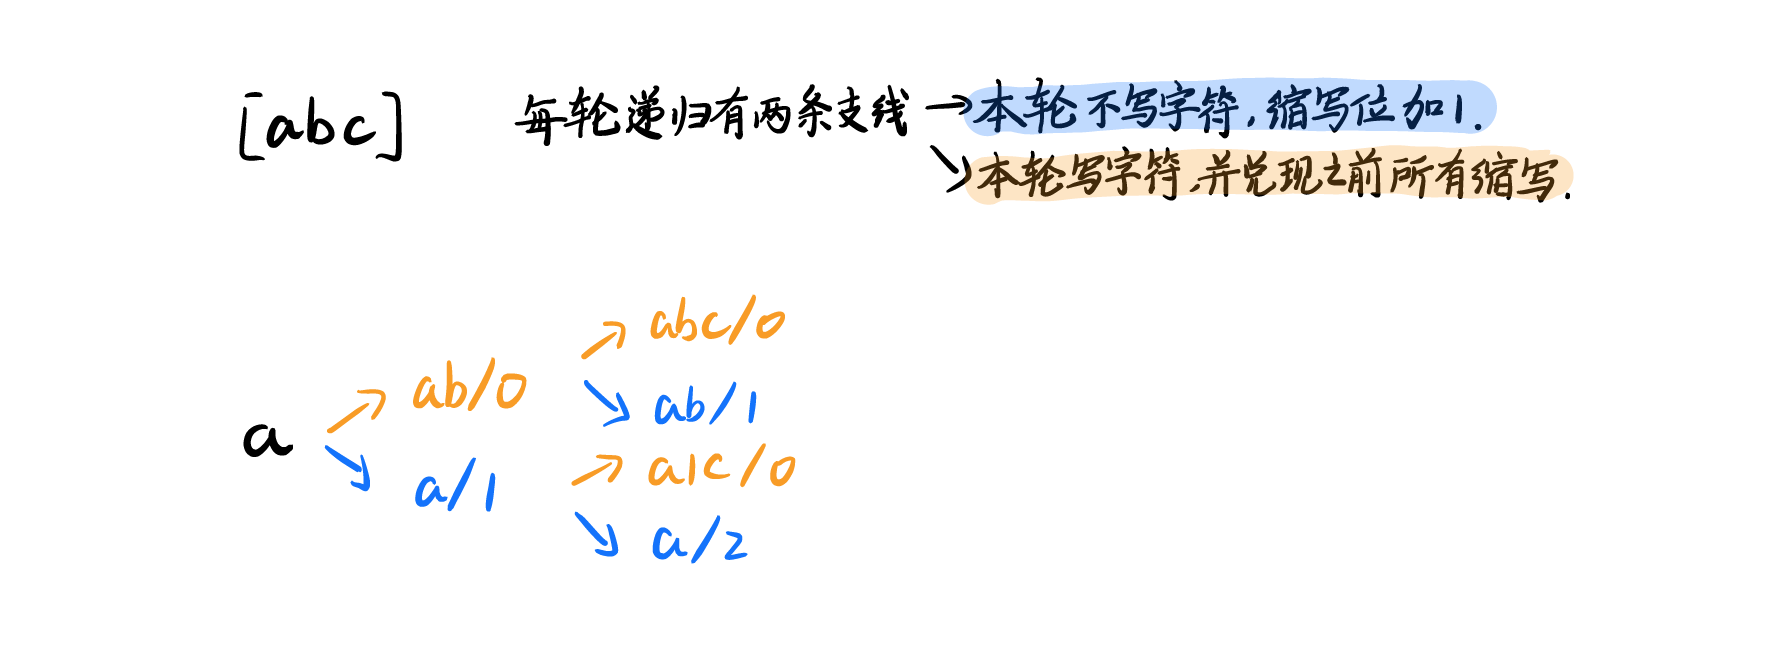 [abc] 每轮递归有两条支线 → 本轮不写字符,缩写位加1.
↘ 本轮写字符,并兑现之前所有缩写.
abc/0
ab/0
ab/1
a
a1c/0
a/1
a/2